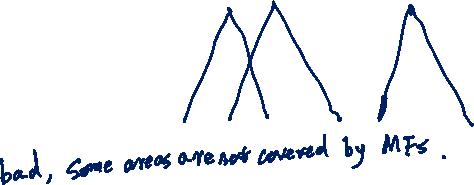 bad, some areas are not covered by MFs.